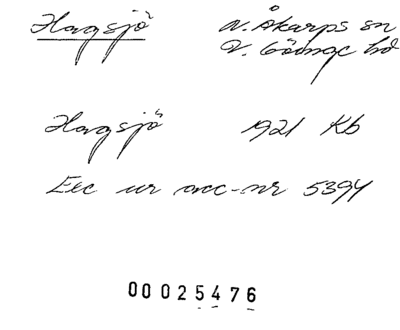 Hagsjö N. Åkarps sn
V. Göinge hd
Hagsjö 1921 Kb
Exc ur acc-nr 5394
00025476